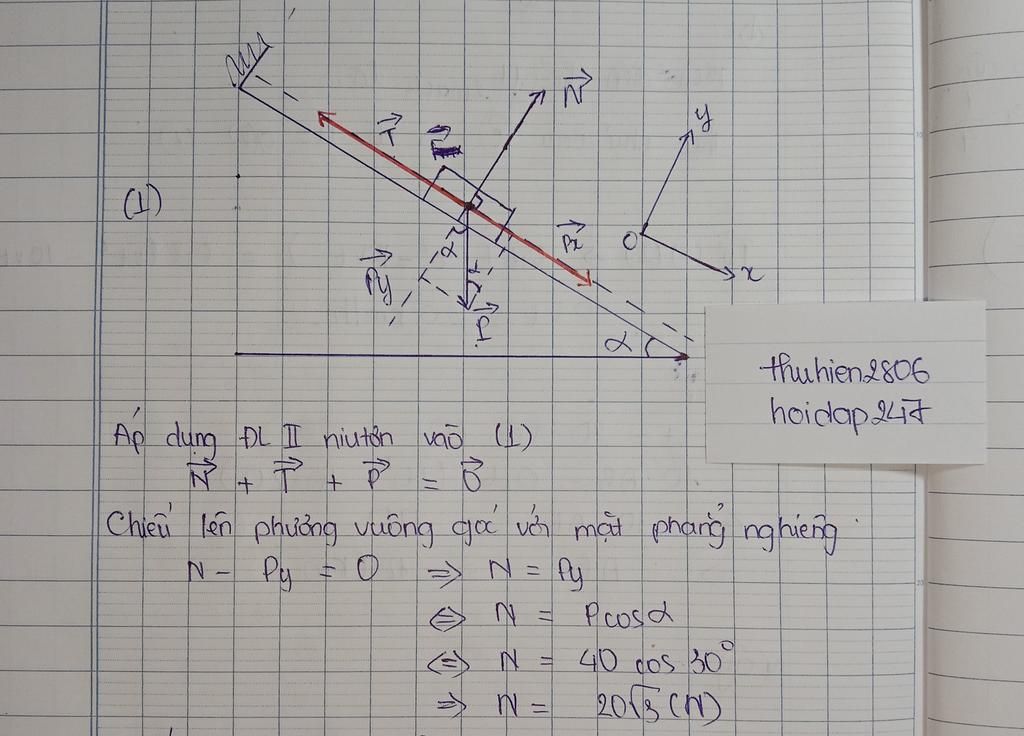 (1)
T
N
y
O
x
Px
Py
α
α
P
α
thuhien2806
hoidap247
Áp dụng ĐL II niutơn vào (1)
N + T + P = 0
Chiếu lên phương vuông góc với mặt phẳng nghiêng.
N - Py = 0 => N = Py
<=> N = Pcosα
<=> N = 40 cos 30°
=> N = 20√3 (N)